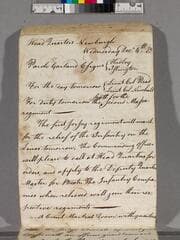 Head Quarters Newburgh
Wednesday Decr 4th
Parole Garland C.Signs { Huntley
Islington
For the day tomorrow {
For duty tomorrow the Second Massa
regiment
The first Jersey regiment will march
for the relief of the Infantry on the
lines tomorrow. The Commanding Officer
will please to call at Head Quarters for
orders and apply to the Deputy Quarter
Master for Boats. The Infantry Compa
nies when relieved will join their res
pective regiments
A Court Martial